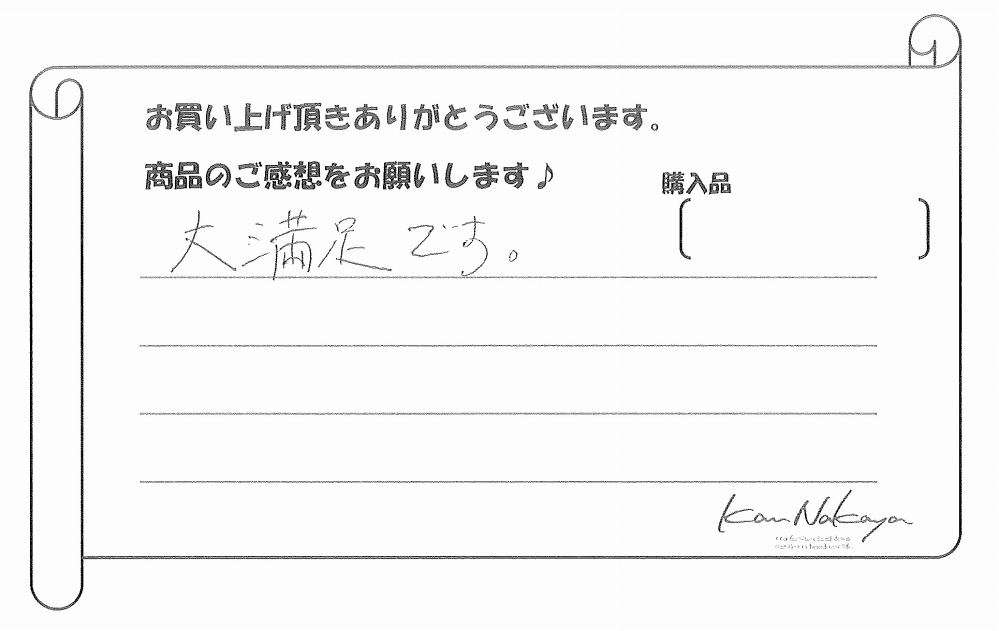 お買い上げ頂きありがとうございます。
商品のご感想をお願いします♪
購入品
大満足です。
Kan Nakaya